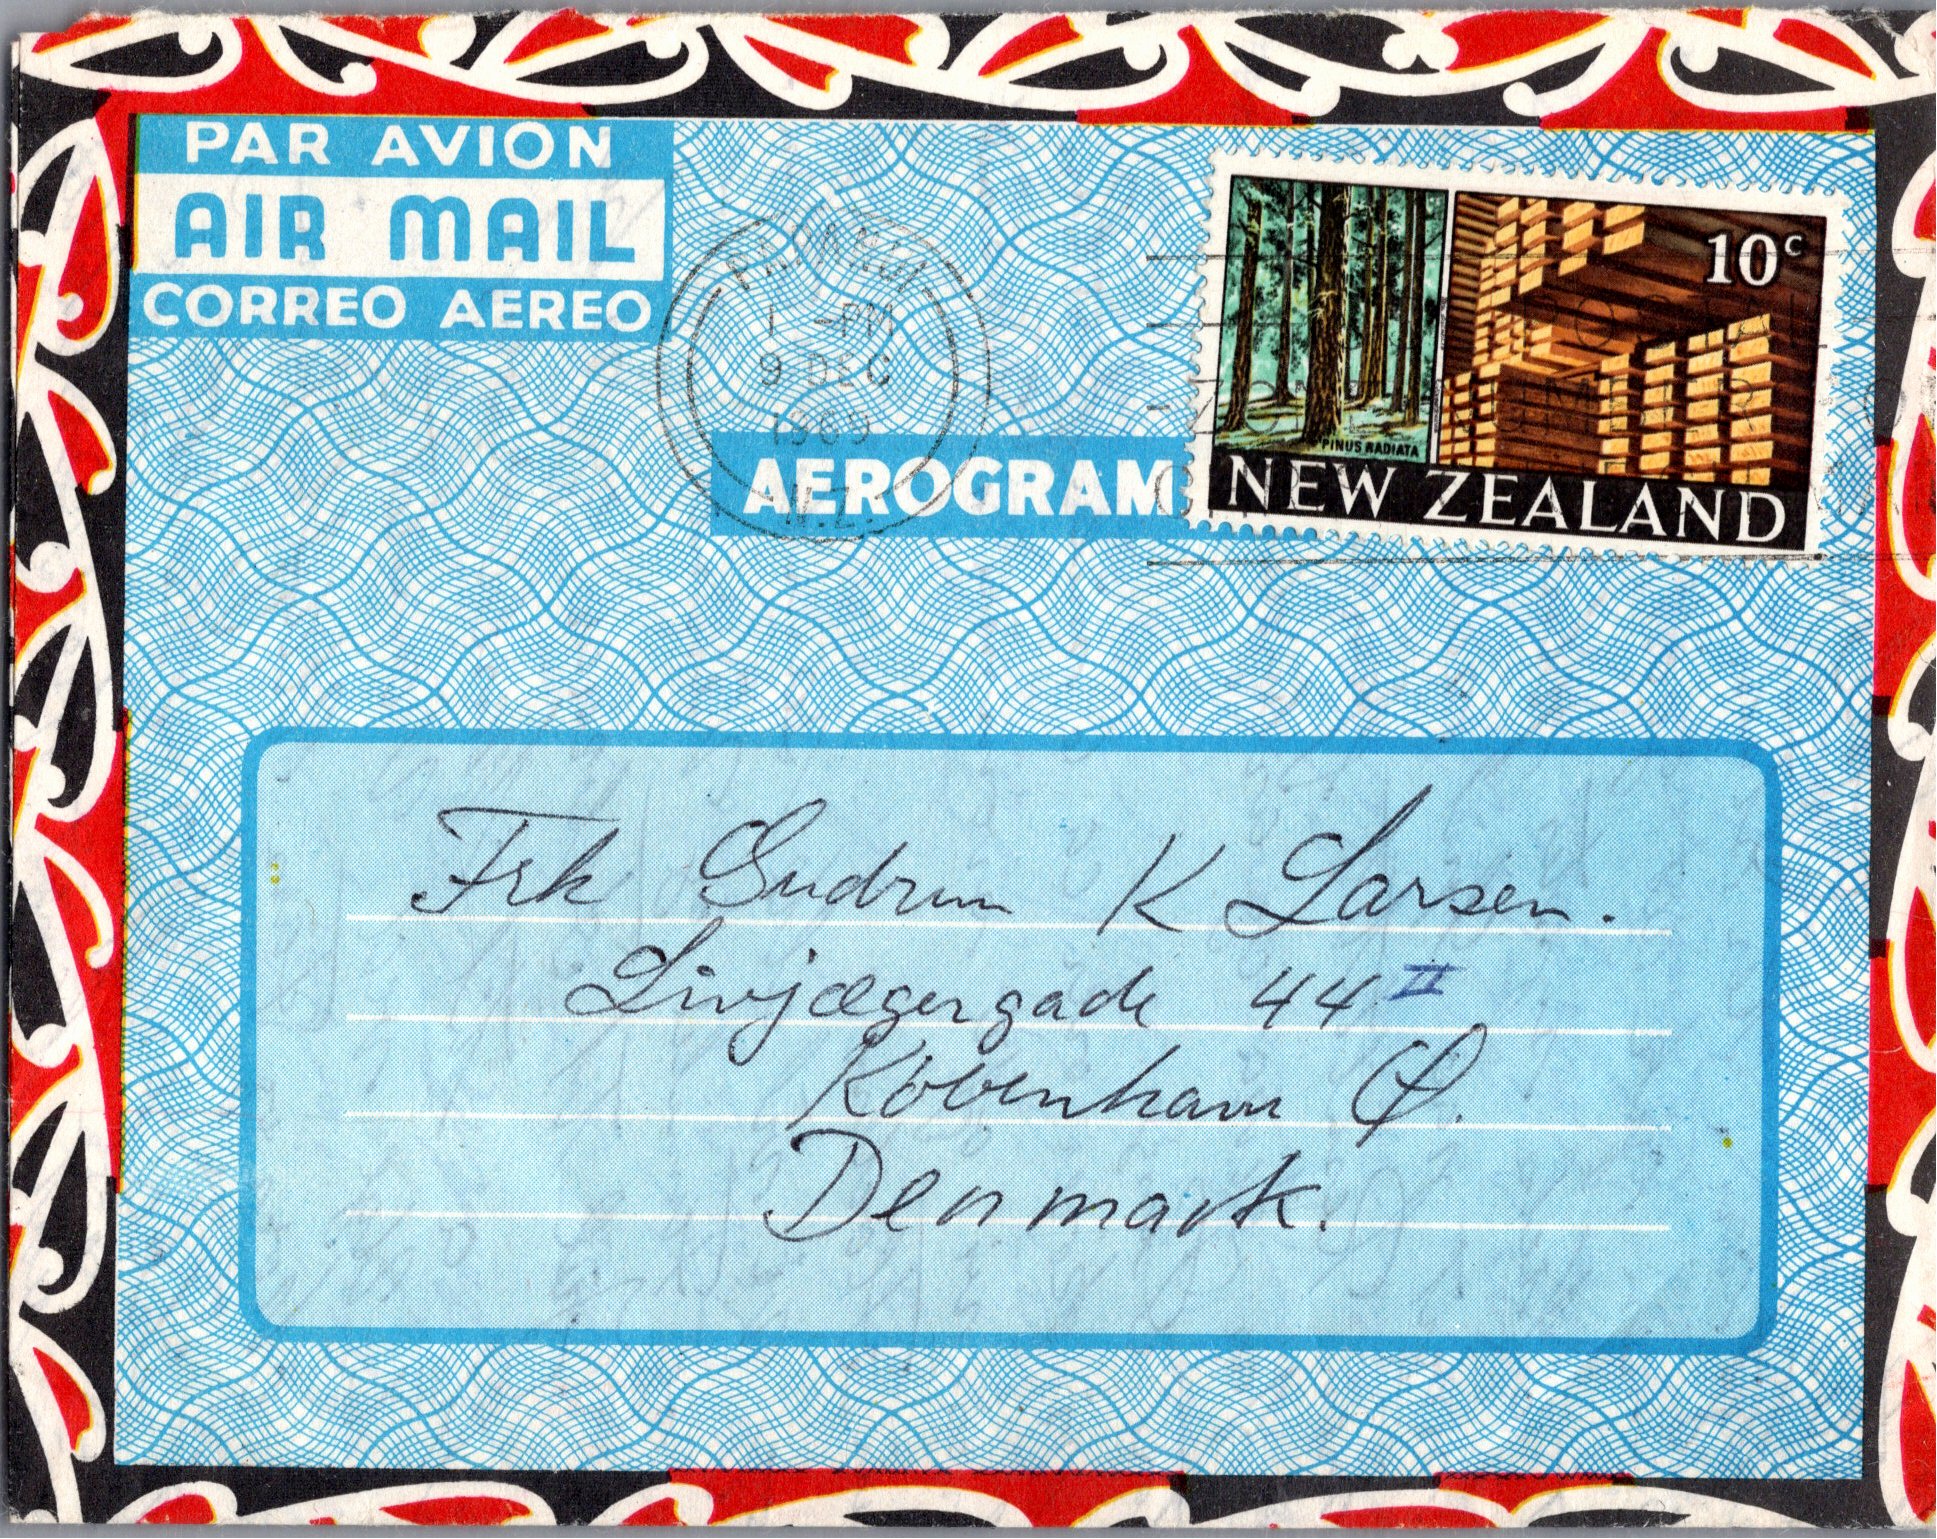 PAR AVION
AIR MAIL
CORREO AEREO
1 -PM
9 DEC
1969
N.Z.
AEROGRAM
10c
PINUS RADIATA
NEW ZEALAND
Frk Gudrun K Larsen.
Livjægergade 44 II
København Ø.
Denmark.